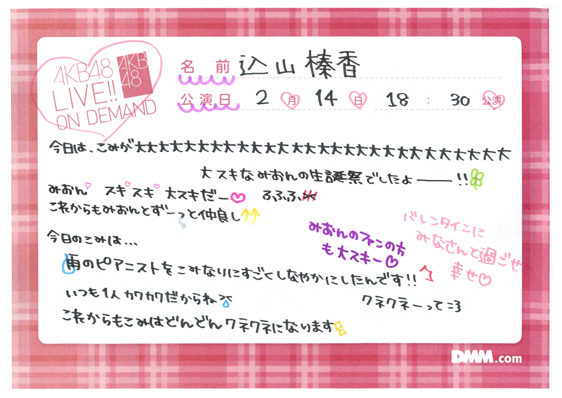 AKB48
LIVE!!
ON DEMAND
AKB
48
名前 込山榛香
公演日 2月 14日 18:30公演
今日は、こみが大大大大大大大大大大大大大大大大大大大大大大大大大大大大
大スキなみおんの生誕祭でしたよーーー!!
みおん♡ スキ♡スキ♡ 大スキだー♡ るふふふ
これからもみおんとずーっと仲良し↑↑
みおんのファンの方
も大スキー♡
バレンタインに
みなさんと過ごせ
幸せ♡
今日のこみは...
雨のピアニストをこみなりにすごくしなやかにしたんです!!
いつも1人カワカワだからね
クネクネーって=3
これからもこみはどんどんクネクネになります
DMM.com